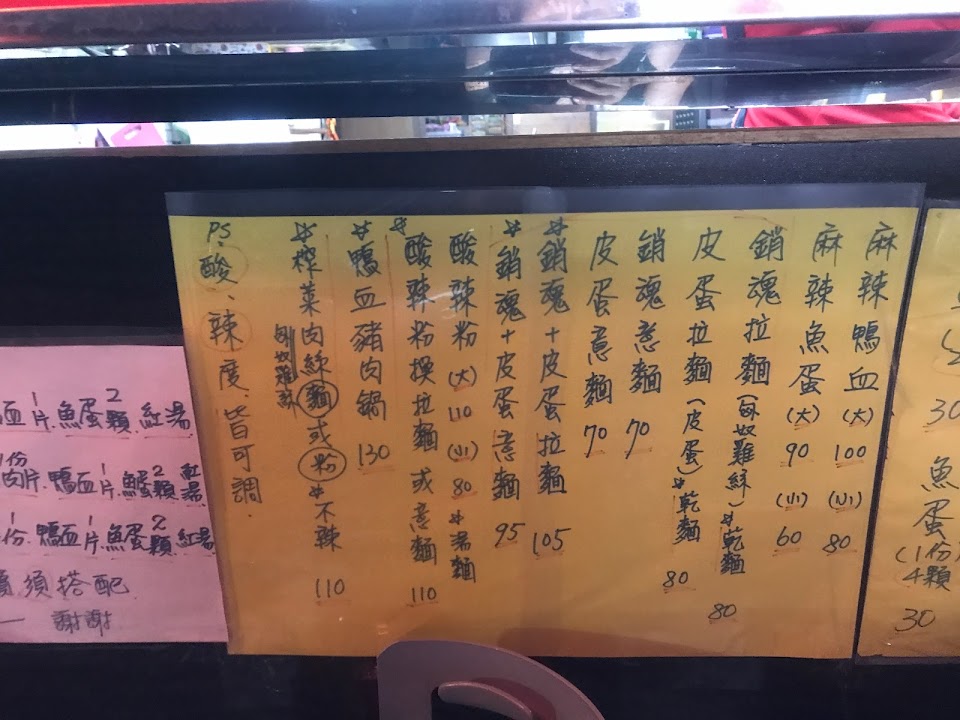 麻辣鴨血(大)100(小)80
麻辣魚蛋(大)90(小)60
銷魂拉麵(匈奴雞絲)*乾麵 80
皮蛋拉麵(皮蛋)*乾麵 80
銷魂意麵 70
皮蛋意麵 70
*銷魂+皮蛋拉麵 105
*銷魂+皮蛋意麵 95
酸辣粉(大)110(小)80*湯麵
*酸辣粉換拉麵或意麵 110
*鴨血豬肉鍋 130
*榨菜肉絲麵或粉*不辣 110
PS、酸、辣度、皆可調.
血1片.魚蛋2顆 紅湯
1份
肉片.鴨血1片.魚蛋2顆 紅湯
1份.鴨血1片.魚蛋2顆 紅湯
須搭配
謝謝
30
魚蛋(1份4顆
30